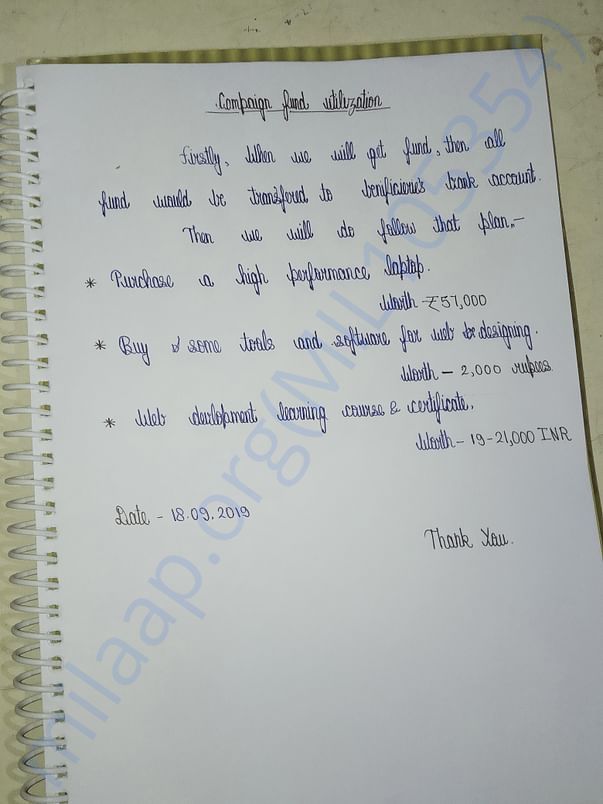 Campaign fund utilization
Firstly, When we will get fund, then all
fund would be transfered to benificieries bank account.
Then we will do follow that plan,-
* Purchase a high performance laptop.
Worth - ₹57,000
* Buy some tools and software for web designing.
Worth - 2,000 rupees.
* Web devlopment learning course & certificate.
Worth - 19-21,000 INR
Date - 18.09.2019
Thank You.
milaap.org(MIL105354)